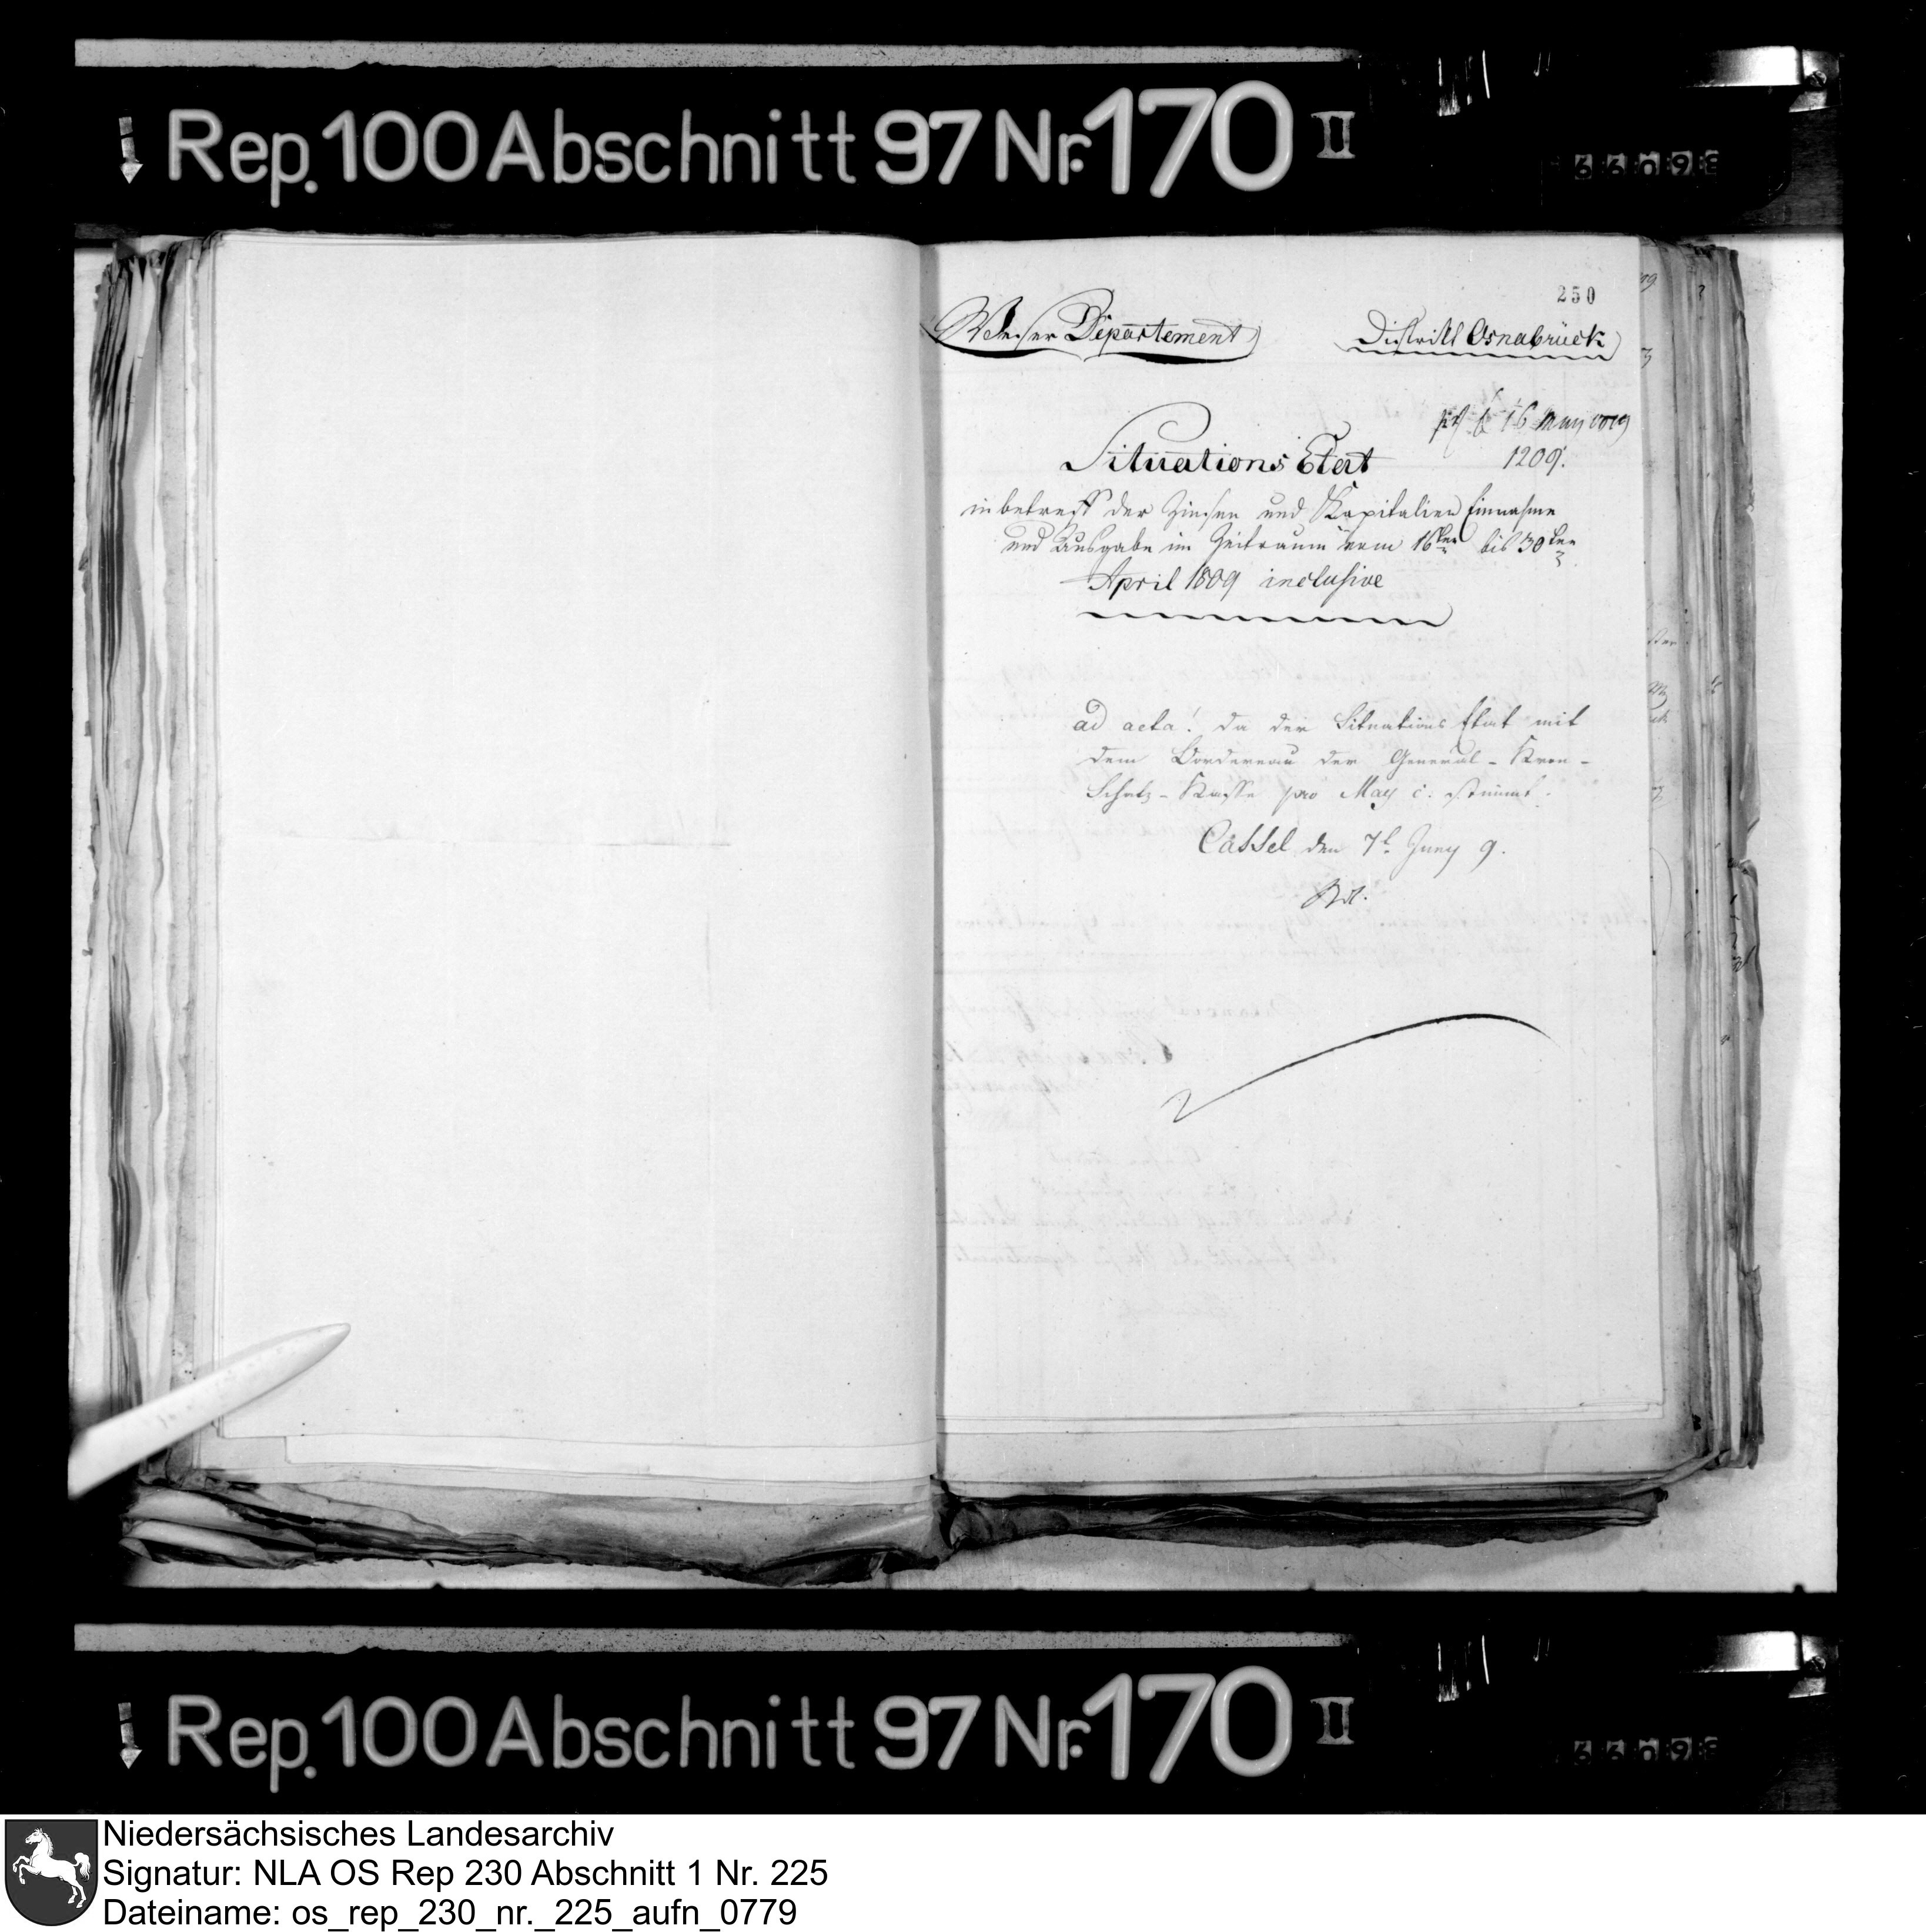 Rep. 100 Abschnitt 97 Nr. 170 II
66093
250
Weser Departement
District Osnabrück
16 May
1209.
Situations Etat
in betreff der Zinsen und Kapitalien Einnahme
und Ausgabe im Zeitraum vom 16ten bis 30ten
April 1809 inclusive
ad acta! da der Situations Etat mit
dem Bordereau der General-Kron-
Schatz-Kasse pro May c. stimmt.
Cassel den 7t Juny 9.
Rep. 100 Abschnitt 97 Nr. 170 II
66093
Niedersächsisches Landesarchiv
Signatur: NLA OS Rep 230 Abschnitt 1 Nr. 225
Dateiname: os_rep_230_nr._225_aufn_0779